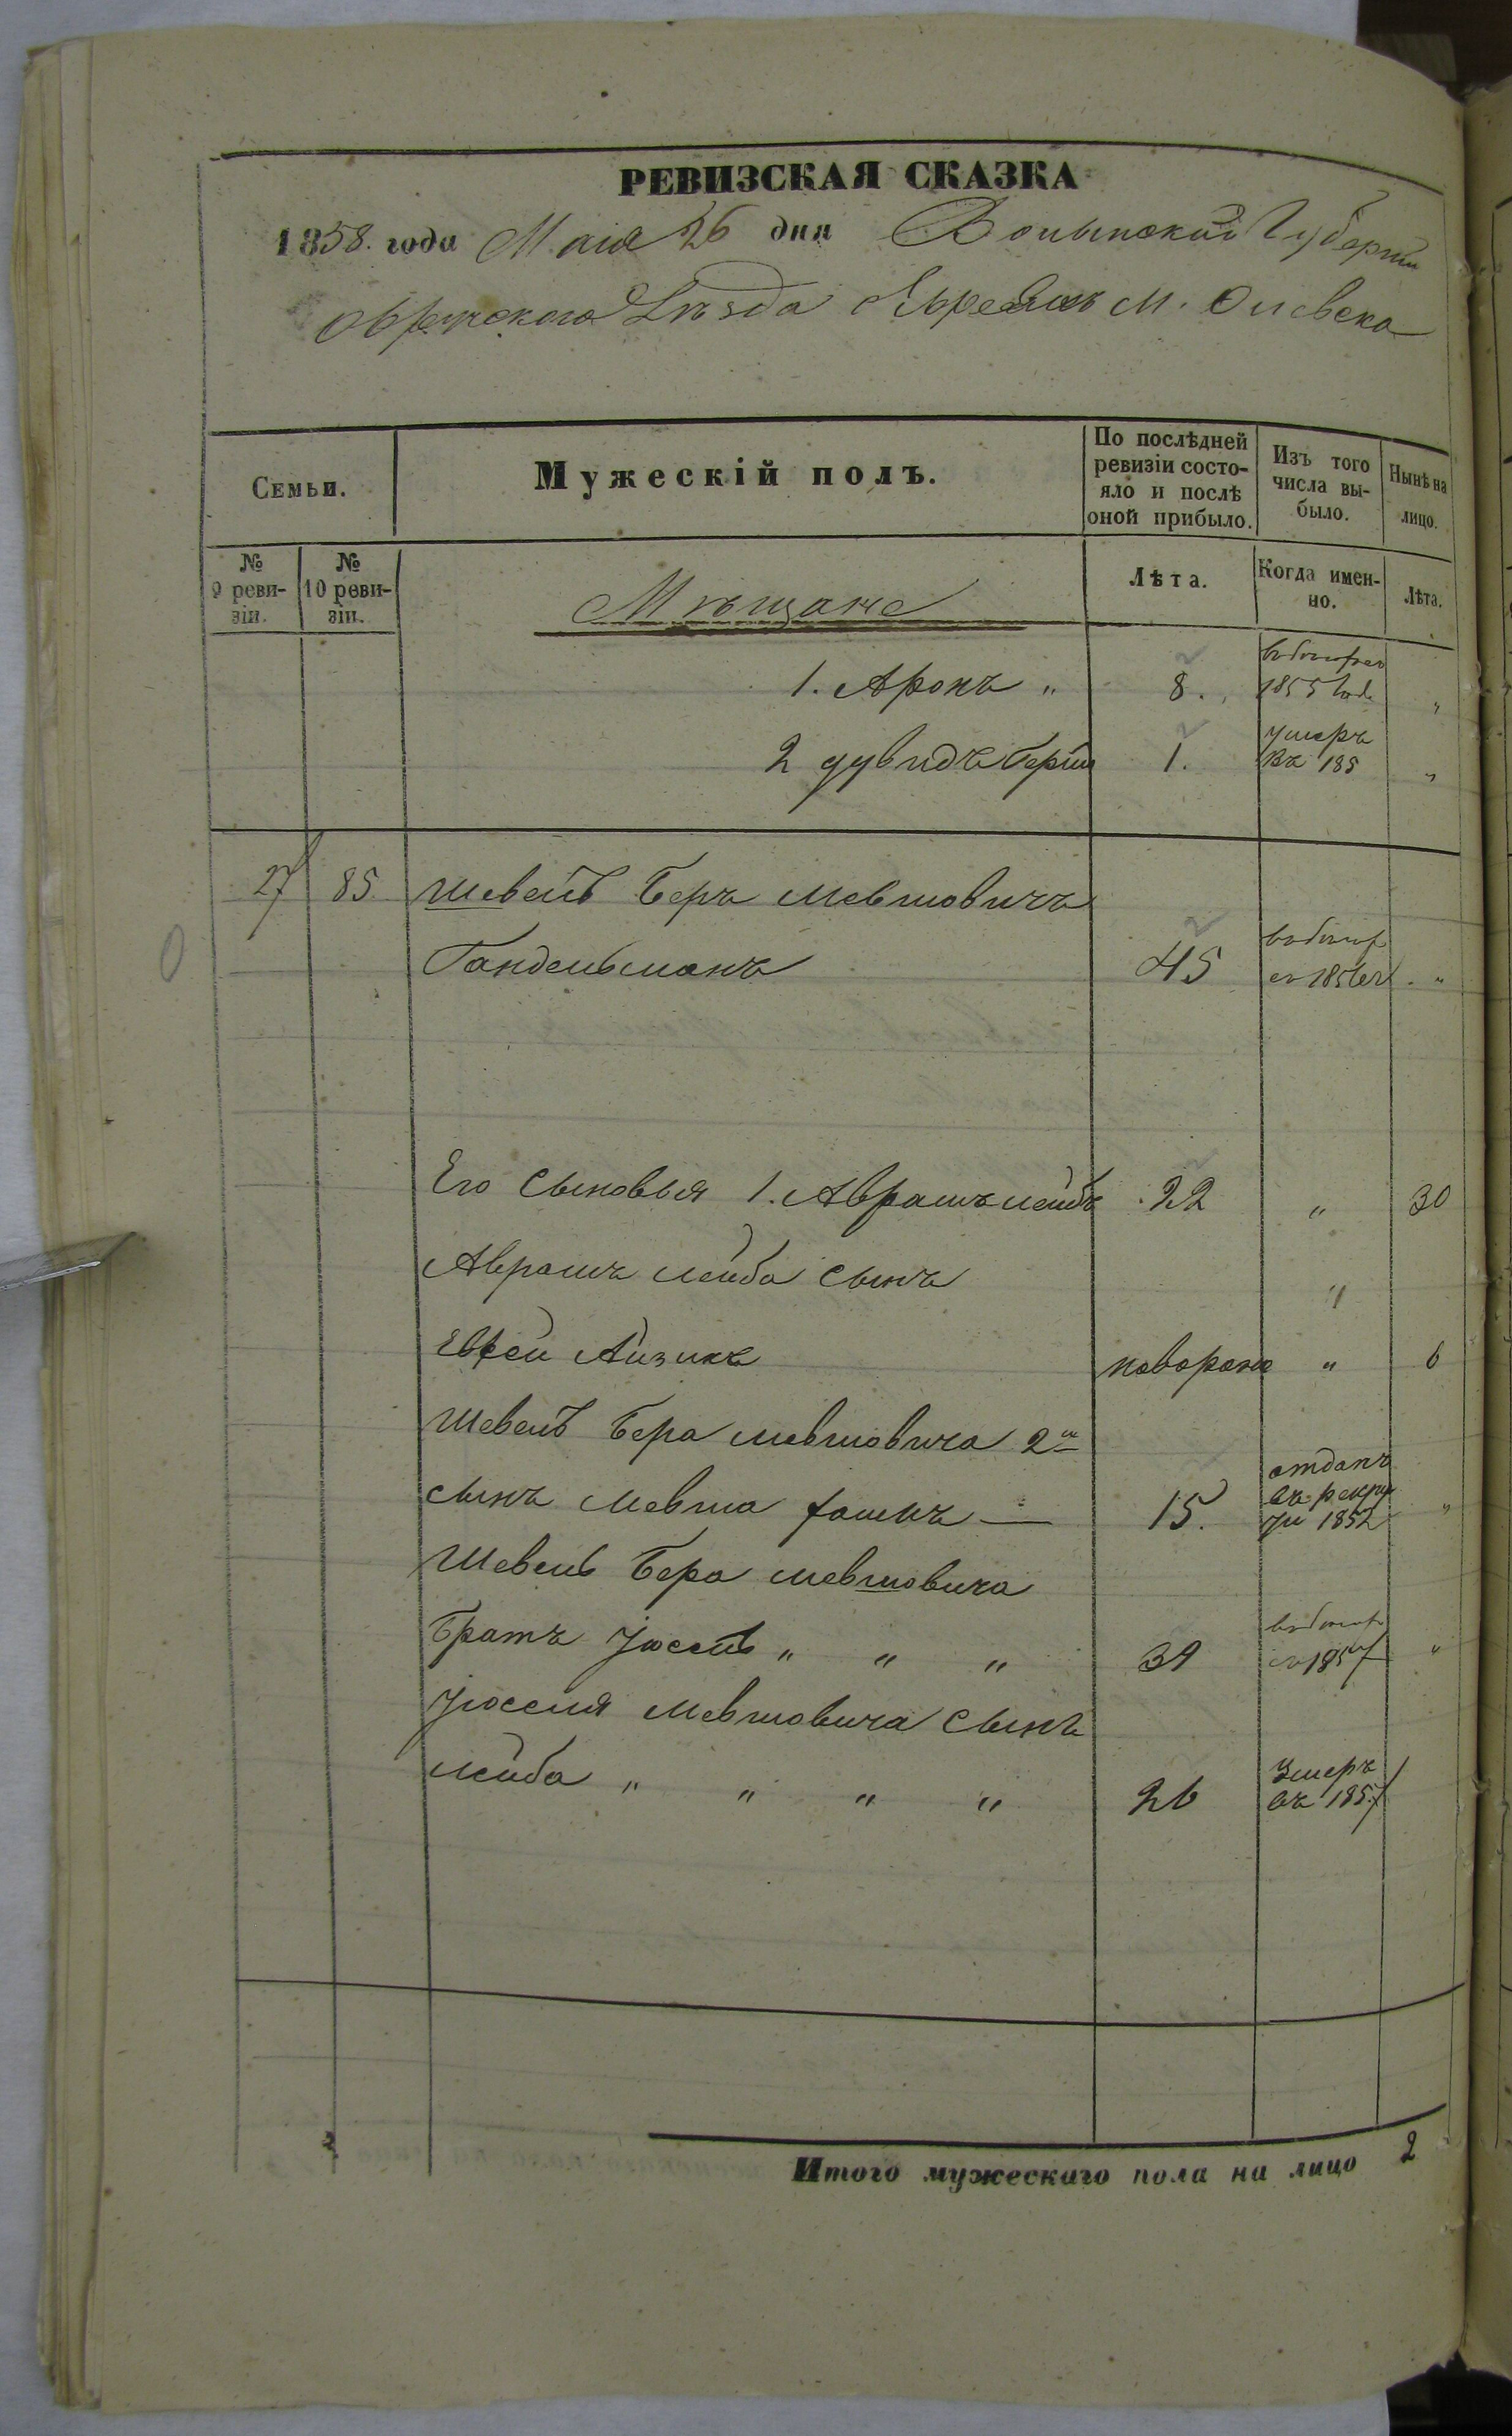 РЕВИЗСКАЯ СКАЗКА
1858. года Маія 26 дня Волынской Губерніи
Овручского Уѣзда Евреевъ м. Олевска
Семьи.
Мужескій полъ.
По послѣдней ревизіи состо-
яло и послѣ
оной прибыло.
Изъ того
числа вы-
было.
Нынѣ на
лицо.
№
9 реви-
зіи.
№
10 реви-
зіи.
Мѣщане
Лѣта.
Когда имен-
но.
Лѣта.
1. Аронъ " 8. 1855 года "
2 Дувидъ Берко 1. умеръ
въ 185 "
27 85 Шевель Беръ Мевшовичъ
Гандельманъ 45 1856 "
Его Сыновья 1. Аврамъ Лейбъ 22 " 30
Аврамъ Лейба Сынъ "
Евсей Айзикъ новорожд " 6
Шевель Бера Мевшовича 2й
сынъ Мевша — 15. отданъ
въ рекру
ты 1852 "
Шевель Бера Мевшовича
Братъ Иосель " " " 39 "
Иоселя Мевшовича Сынъ
Лейба " " " " 26 Умеръ
въ 1857
Итого мужескаго пола на лицо 2